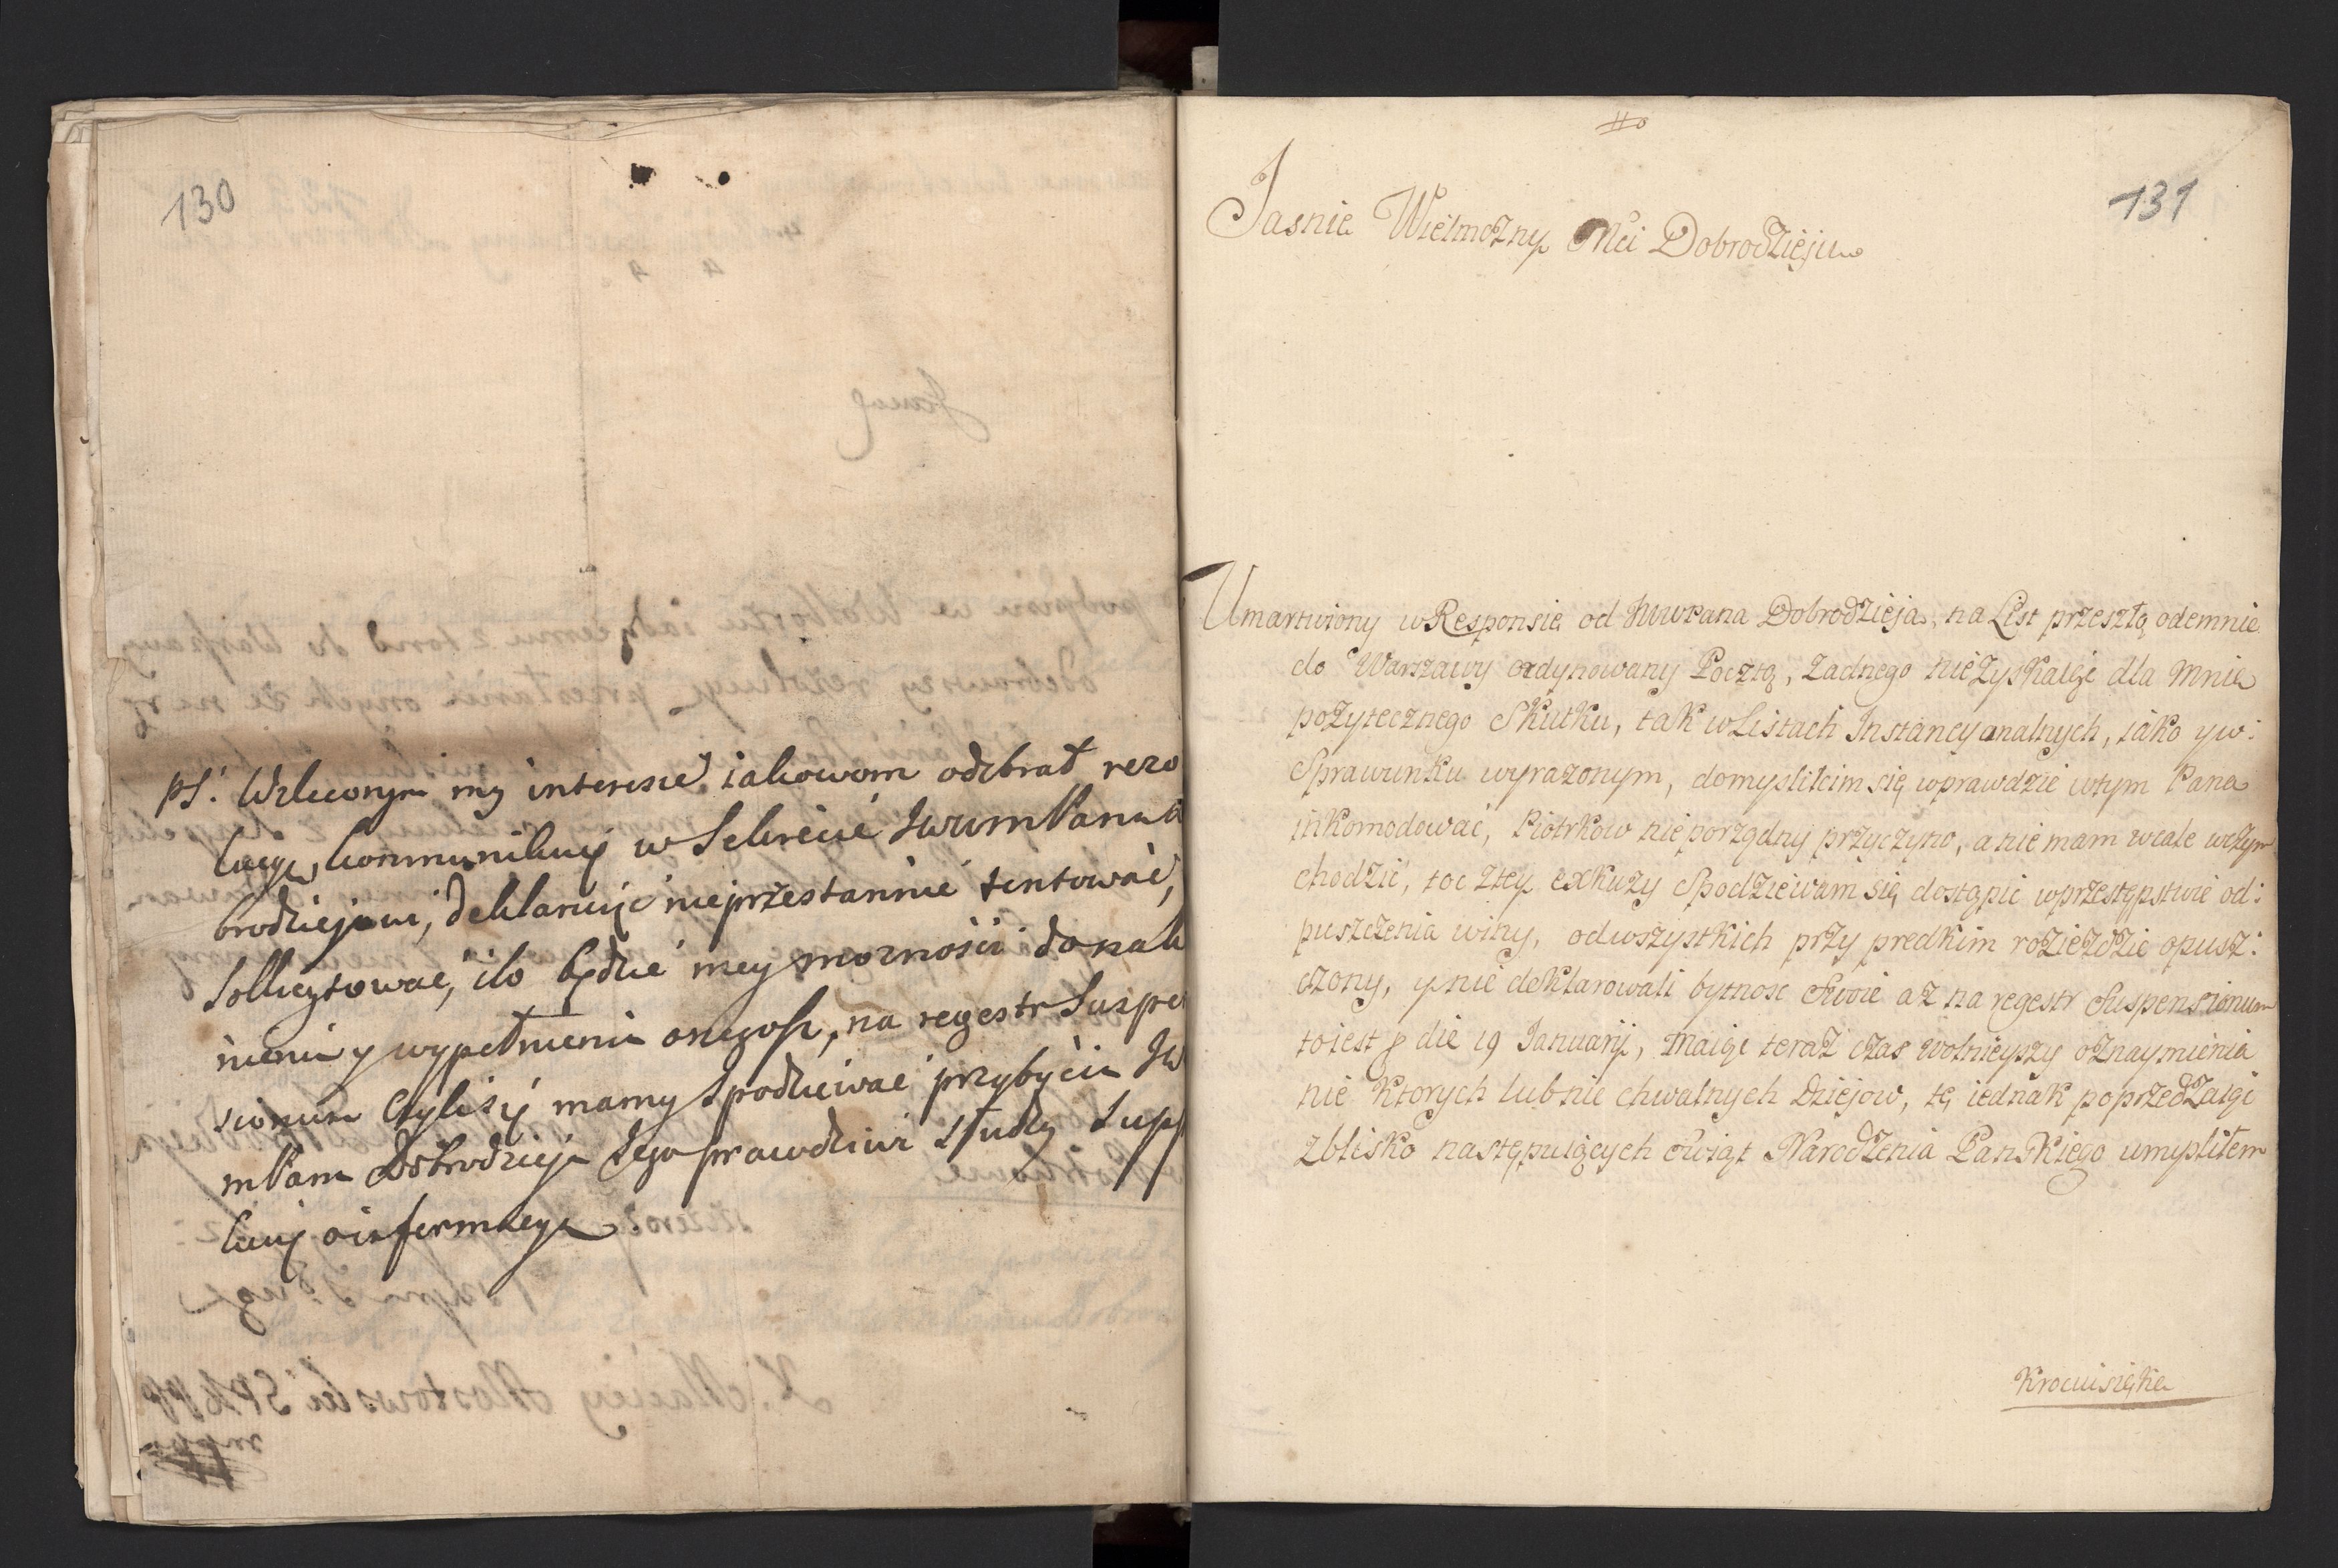 130
PS. Wzleconym my interesie iakowom odebrał rezo
lucyę, kommunikuię w Sekrecie JWWmPanu D
brodziejowi, deklaruiąc nieprzestannie tentować,
sollicytować, ilo będzie mey możności do nakł
nienia y wypełnienia onegosz, na regestr Suspen
sionum czylisz mamy spodziewac przybycia JW
mPana Dobrodzieja Jego prawdziwi słudzy supp
likuię o informacyą

131
Jasnie Wielmożny Mci Dobrodzieju
Umartwiony w Responsie od JWWPana Dobrodzieja, na List przeszłą odemnie
do Warszawy ordynowany Pocztą, żadnego nieżyskaiąc dla mnie
pożytecznego Skutku, tak w Listach Instancyonalnych, iako y w:
Sprawunku wyrażonym, domysliłem się wprawdzie wtym Pana
inkomodować, Piotrkow nieporządny przyczyno, a nie mam wcale wczym
chodzić, toć z tey exkuzy Spodziewam się dostąpić w przestępstwie od:
puszczenia winy, od wszystkich przy prędkim rozieździe opusz:
czony, y nie deklarowali bytność Swoie aż na regestr Suspensionum
toiest p die 19 Januarij, maiąc teraz czas wolnieyszy oznaymienia
nie ktorych lub nie chwalnych dziejow, tę iednak poprzedzaiąc
zblisko następuiących Swiąt Narodzenia Panskiego umyśliłem